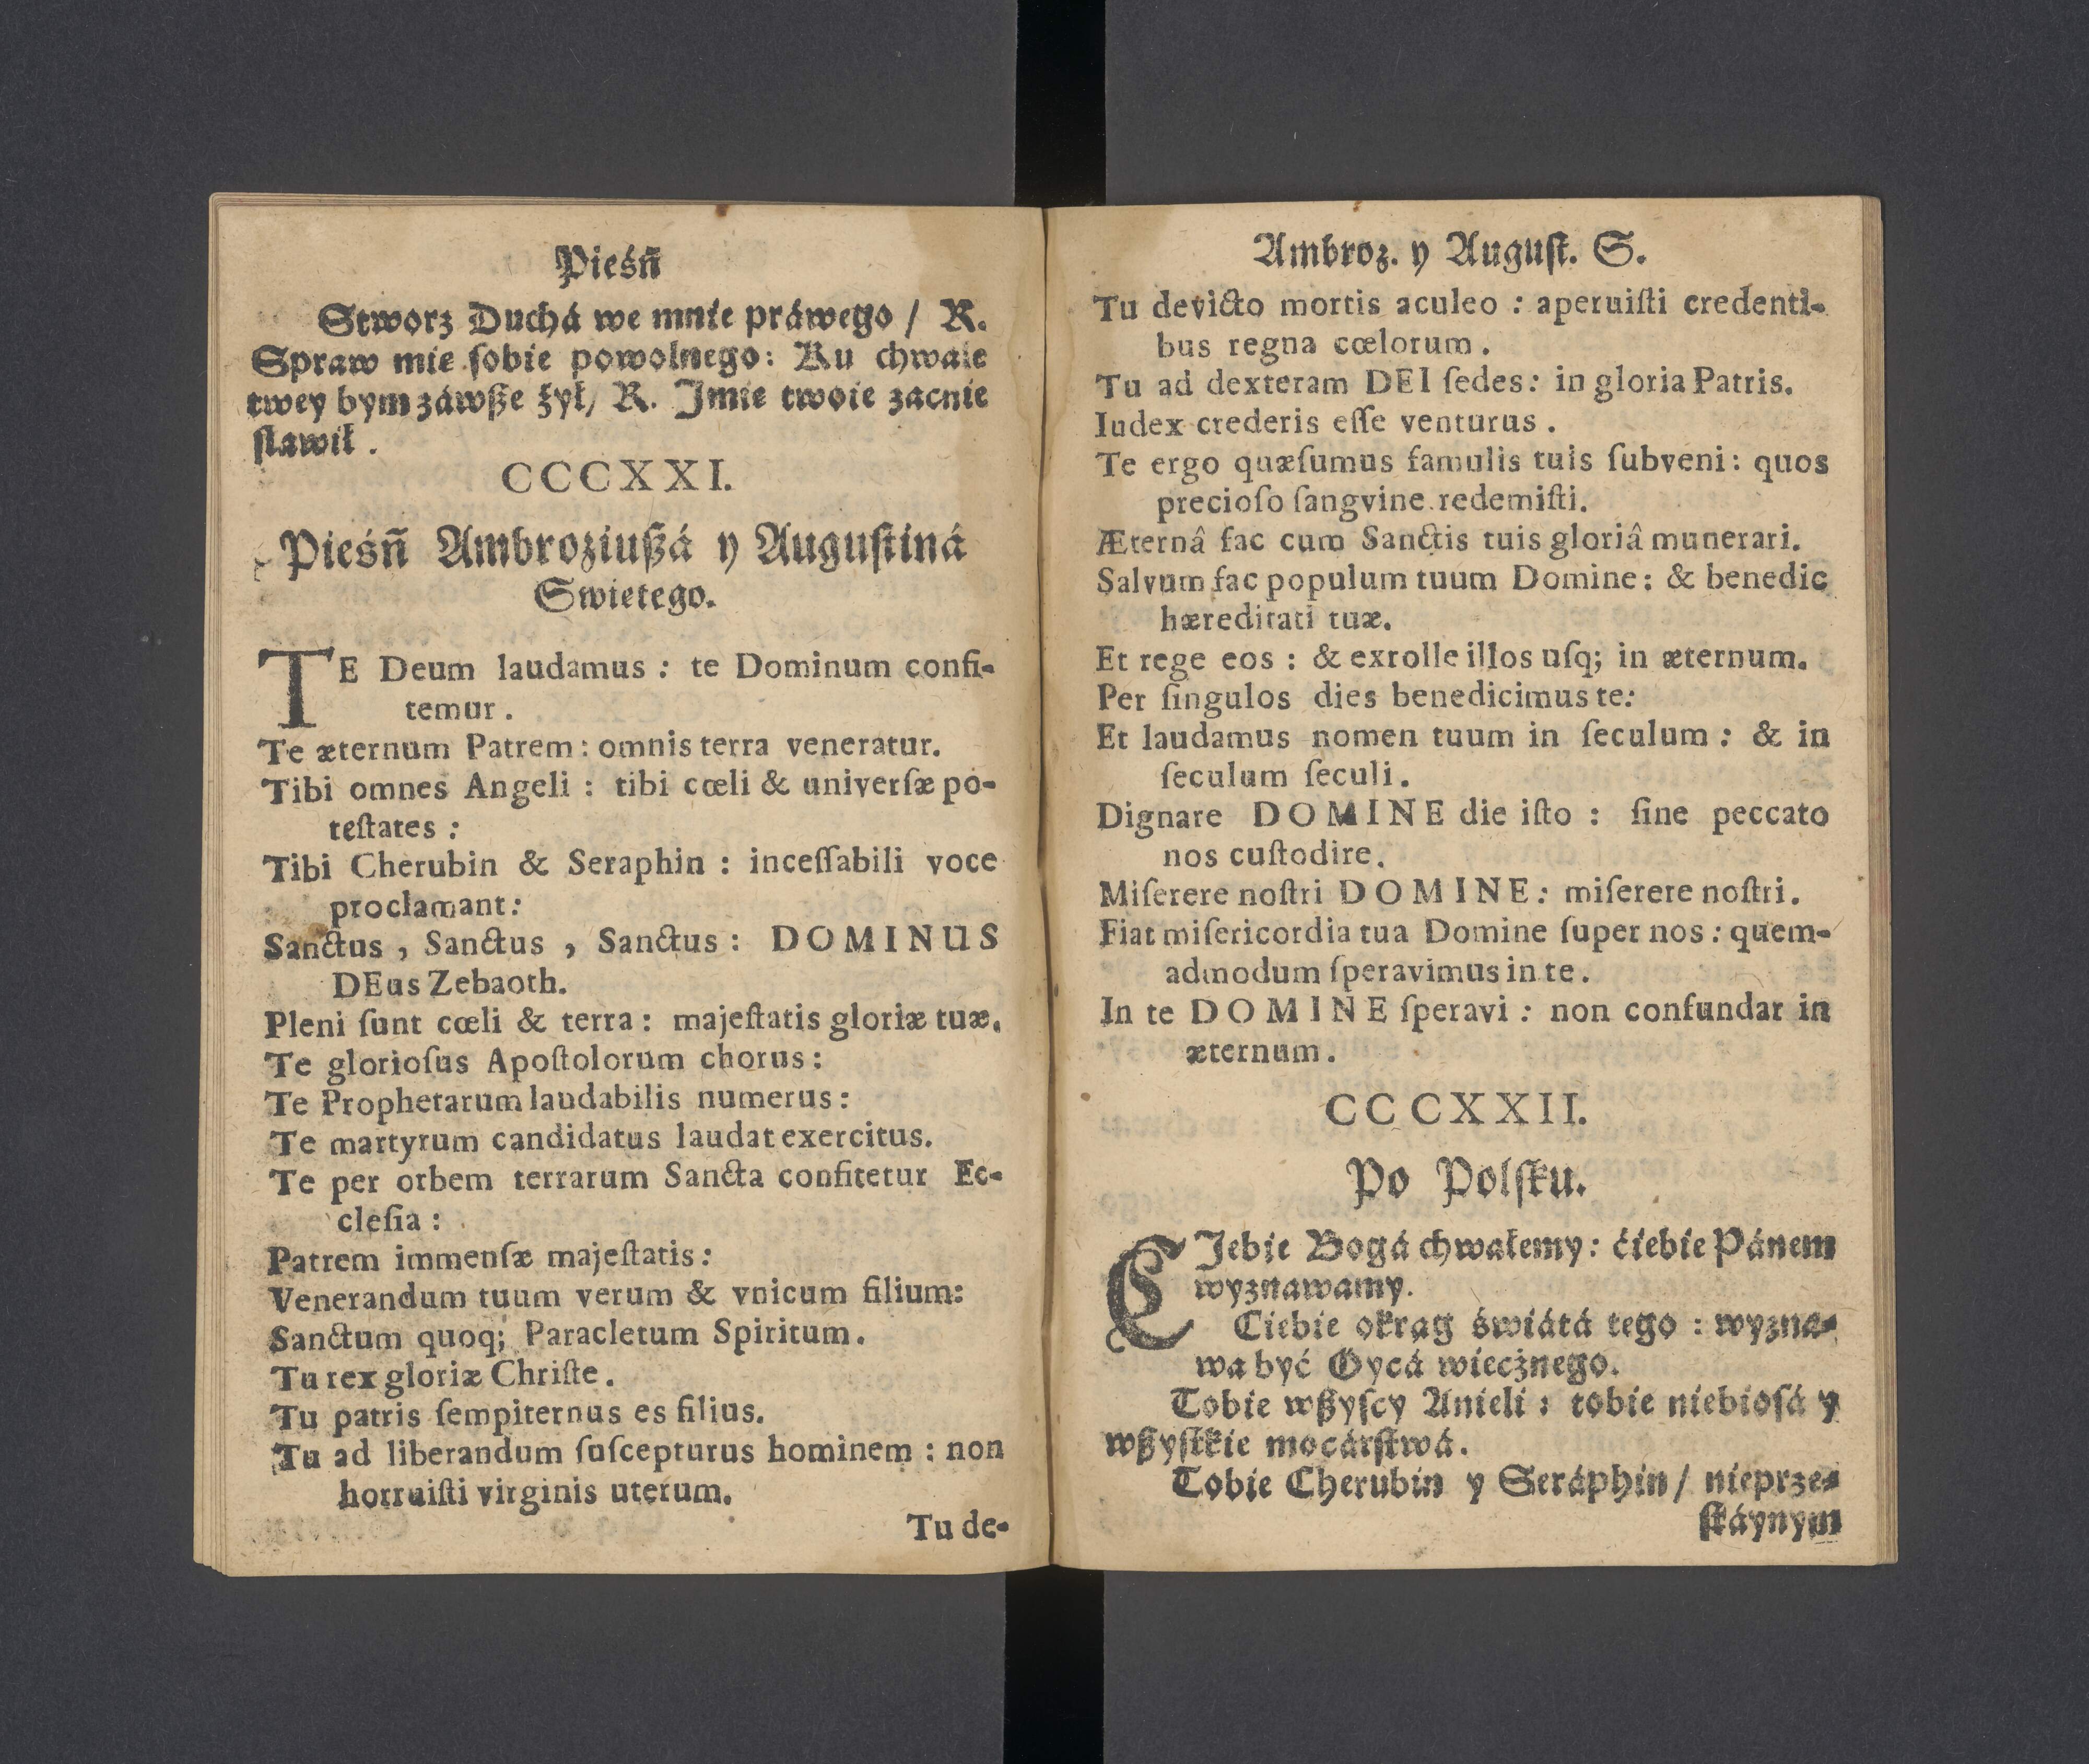 Pieśñ
Stworz Duchá we mnie práwego / R.
Spraw mie sobie powolnego: Ku chwale
twey bym záwße żył/ R. Imie twoie zacnie
sławił.
CCCXXI.
Pieśñ Ambroziußá y Augustiná
Swietego.
TE Deum laudamus : te Dominum confi-
temur.
Te æternum Patrem : omnis terra veneratur.
Tibi omnes Angeli : tibi cœli & univerſæ po-
teſtates :
Tibi Cherubin & Seraphin : inceſſabili voce
proclamant :
Sanctus, Sanctus, Sanctus : DOMINUS
DEus Zebaoth.
Pleni ſunt cœli & terra : majeſtatis gloriæ tuæ.
Te glorioſus Apoſtolorum chorus :
Te Prophetarum laudabilis numerus :
Te martyrum candidatus laudat exercitus.
Te per orbem terrarum Sancta confitetur Ec-
cleſia :
Patrem immenſæ majeſtatis :
Venerandum tuum verum & vnicum filium:
Sanctum quoq; Paracletum Spiritum.
Tu rex gloriæ Chriſte.
Tu patris ſempiternus es filius.
Tu ad liberandum ſuſcepturus hominem : non
horruiſti virginis uterum.
Tu de-
Ambroz. y Auguſt. S.
Tu devicto mortis aculeo : aperuiſti credenti-
bus regna cœlorum.
Tu ad dexteram DEI ſedes : in gloria Patris.
Iudex crederis eſſe venturus.
Te ergo quæſumus famulis tuis ſubveni : quos
precioſo ſangvine redemiſti.
Æternâ fac cum Sanctis tuis gloriâ munerari.
Salvum fac populum tuum Domine : & benedic
hæreditati tuæ.
Et rege eos : & exrolle illos uſq; in æternum.
Per ſingulos dies benedicimus te :
Et laudamus nomen tuum in ſeculum : & in
ſeculum ſeculi.
Dignare DOMINE die iſto : ſine peccato
nos cuſtodire.
Miſerere noſtri DOMINE : miſerere noſtri.
Fiat miſericordia tua Domine ſuper nos : quem-
admodum ſperavimus in te.
In te DOMINE ſperavi : non confundar in
æternum.
CCCXXII.
Po Polſku.
CIebie Bogá chwałemy : ćiebie Pánem
wyznawamy.
Ciebie okrag świátá tego : wyzna-
wa być Oycá wiecżnego.
Tobie wßyſcy Anieli : tobie niebioſá y
wßyſtkie mocárſtwá.
Tobie Cherubin y Seráphin / nieprze-
ſtáynym